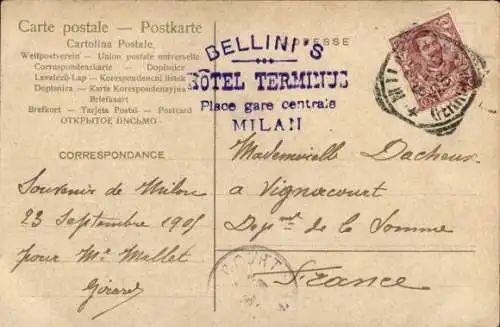 Carte postale — Postkarte
Cartolina Postale.
Weltpostverein — Union postale universelle
Correspondenzkarte — Dopisnice
Levelező-Lap — Korespondenční lístek
Dopisnica — Karta Korespondencyjna
Briefkaart
Brefkort — Tarjeta Postal — Postcard
ОТКРЫТОЕ ПИСЬМО
CORRESPONDANCE
BELLINI'S
HÔTEL TERMINUS
Place gare centrale
MILAN
Souvenir de Milan
23 Septembre 1905
pour Mr Mallet
Girard
Mademoiselle Dacheux
a Vignacourt
Depmt de la Somme
France